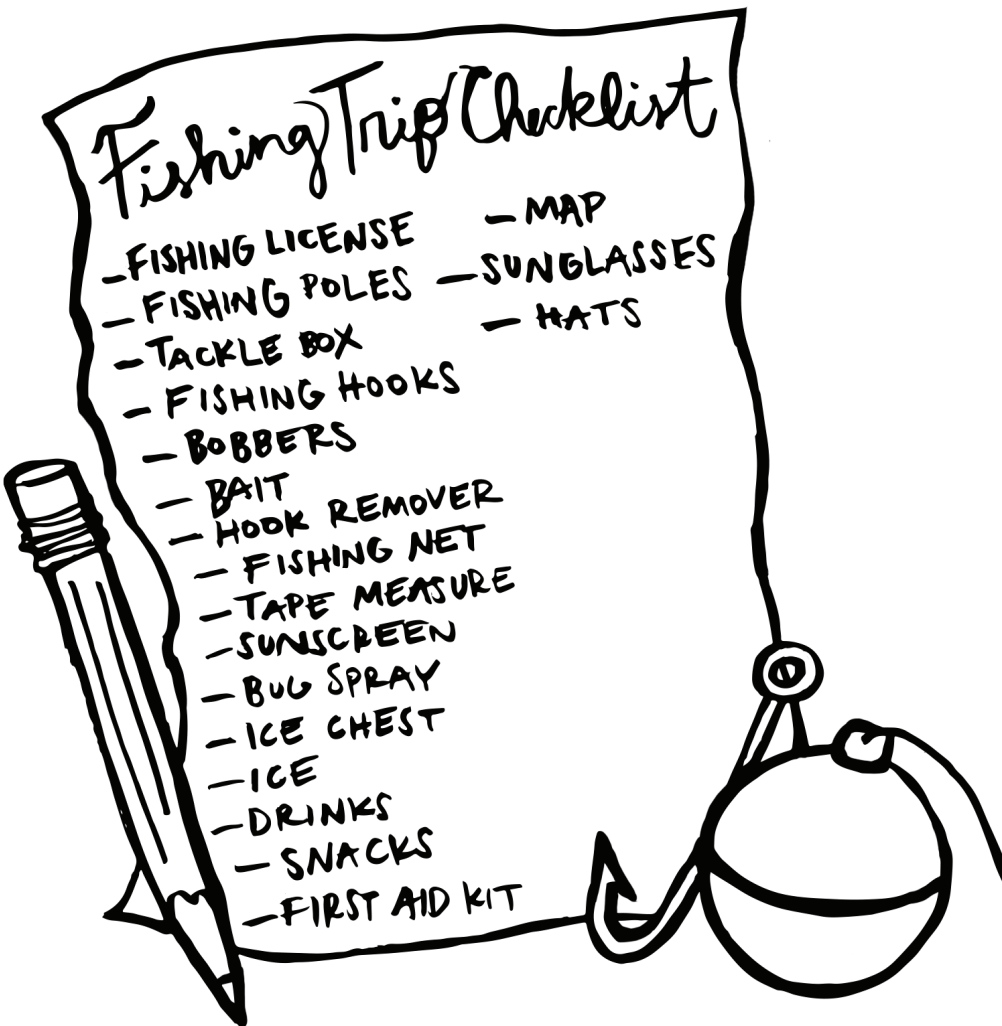 Fishing Trip Checklist
- FISHING LICENSE
- FISHING POLES
- TACKLE BOX
- FISHING HOOKS
- BOBBERS
- BAIT
- HOOK REMOVER
- FISHING NET
- TAPE MEASURE
- SUNSCREEN
- BUG SPRAY
- ICE CHEST
- ICE
- DRINKS
- SNACKS
- FIRST AID KIT
- MAP
- SUNGLASSES
- HATS